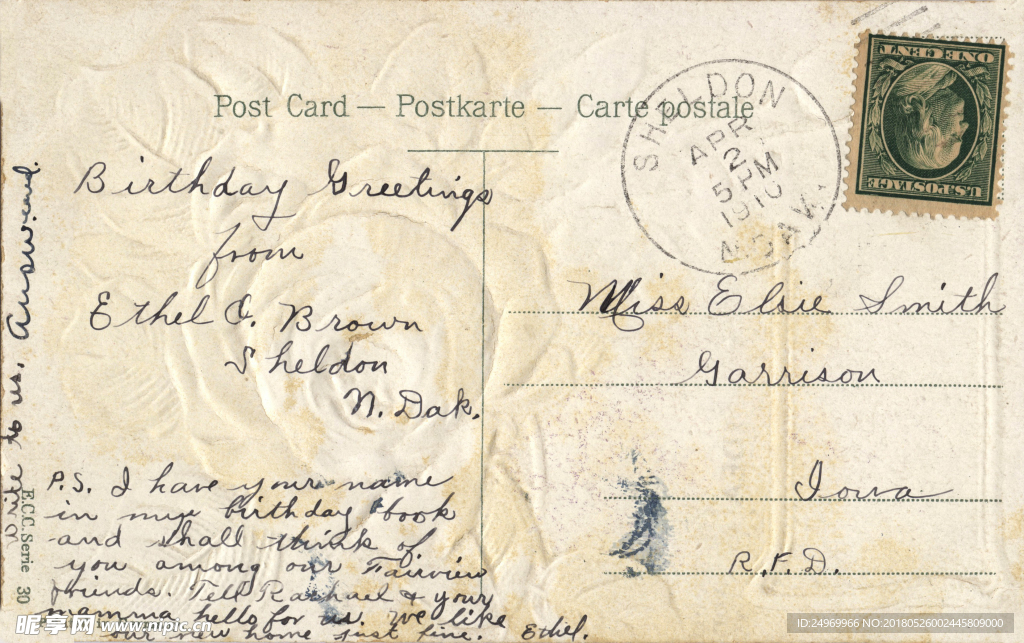 Post Card — Postkarte — Carte postale
SHELDON
APR
2
5 PM
1910
N. DAK.
ONE CENT
U.S. POSTAGE
Birthday Greetings
from
Ethel O. Brown
Sheldon
N. Dak.
P.S. I have your name
in my birthday book
and shall think of
you among our Fairview
friends. Tell Rachael & your
mamma hello for us. We like
our new home just fine. Ethel.
Write to us. Answered.
E.C.C. Serie 30
Miss Elsie Smith
Garrison
Iowa
R.F.D.
昵图网 www.nipic.cn
ID:24969966 NO:20180526002445809000